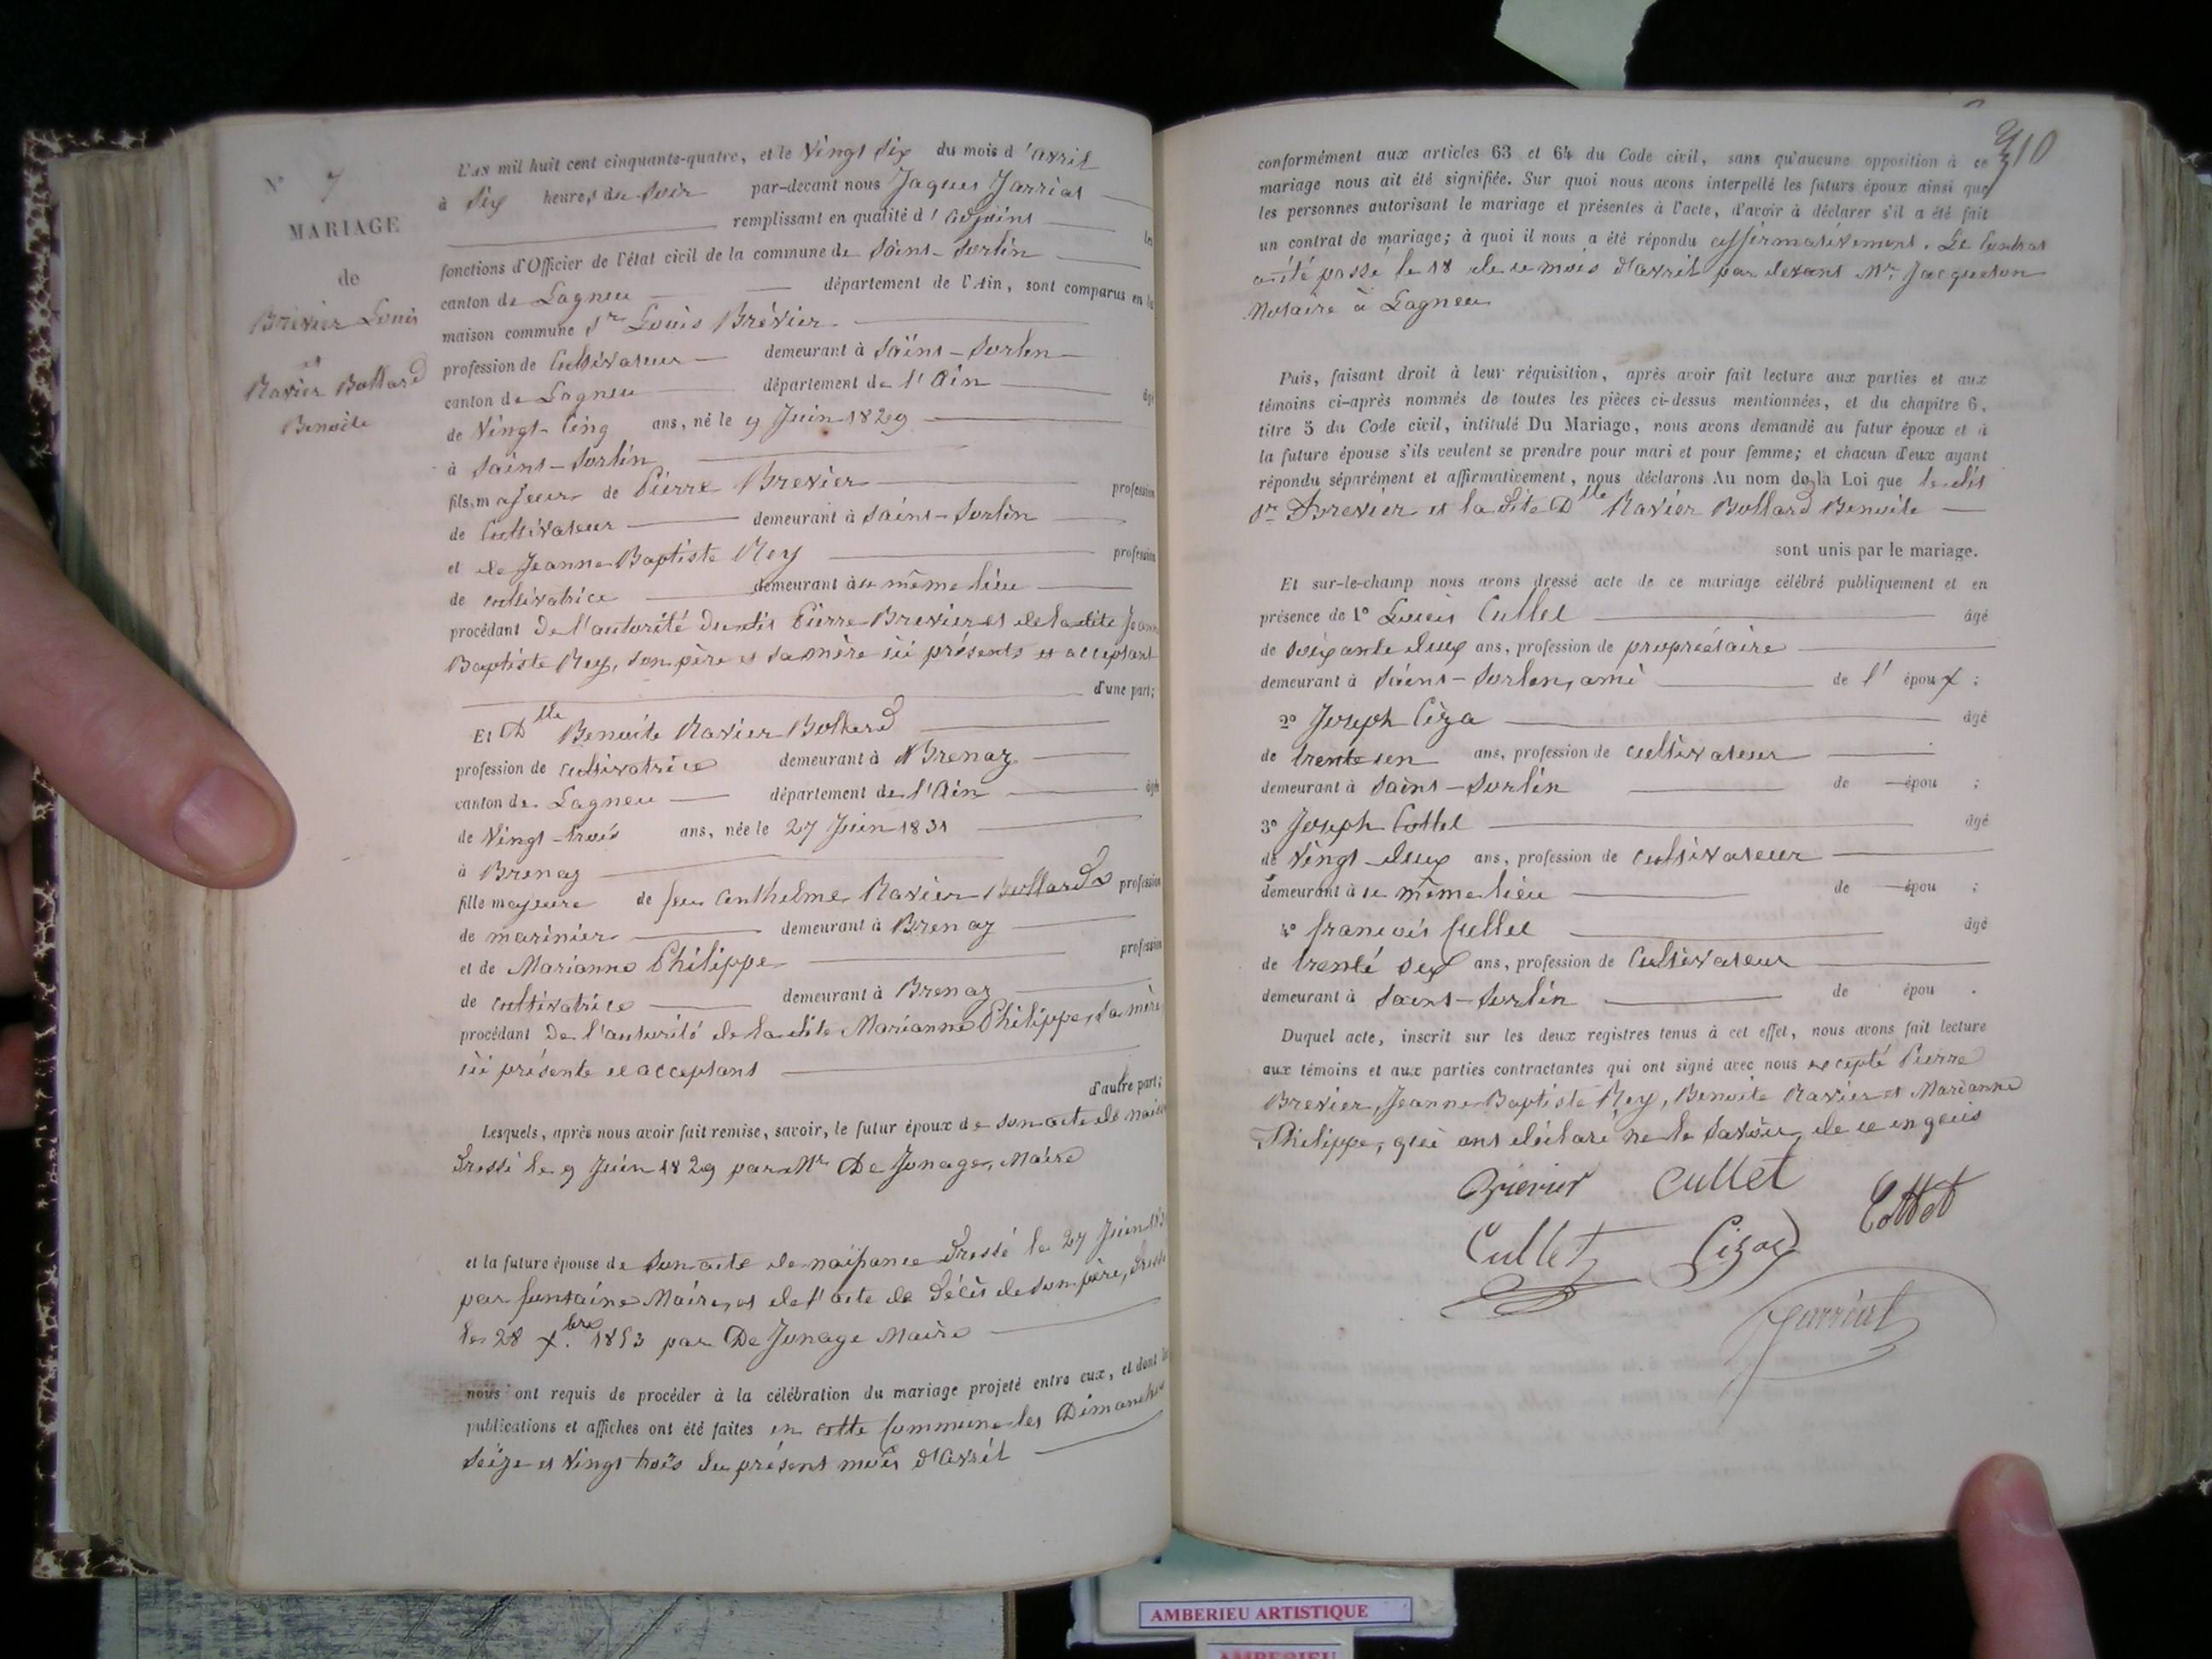 N° 7
MARIAGE
de
Brévier Louis
et
Ravier Bollard
Benoite
L'AN mil huit cent cinquante-quatre, et le Vingt six du mois d'avril
à six heures du soir par-devant nous Jaques Jarriat
remplissant en qualité d'adjoint les
fonctions d'Officier de l'état civil de la commune de Saint-Sorlin
canton de Lagneu département de l'Ain, sont comparus en la
maison commune Sr Louis Brévier
profession de Cultivateur demeurant à Saint-Sorlin
canton de Lagneu département de l'Ain âgé
de Vingt-Cinq ans, né le 9 Juin 1829
à Saint-Sorlin
fils majeur de Pierre Brevier profession
de Cultivateur demeurant à Saint-Sorlin
et de Jeanne Baptiste Rey profession
de cultivatrice demeurant au même lieu
procédant De l'autorité dudit Pierre Brevier et de la dite Jeanne
Baptiste Rey, son père et sa mère ici présents et acceptant
d'une part;
Et Dlle Benoite Ravier Bollard
profession de cultivatrice demeurant à Brenaz
canton de Lagneu département de l'Ain âgée
de Vingt-trois ans, née le 27 Juin 1831
à Brenaz
fille majeure de feu Anthelme Ravier Bollard profession
de marinier demeurant à Brenaz
et de Marianne Philippe profession
de cultivatrice demeurant à Brenaz
procédant De l'autorité de la dite Marianne Philippe, sa mère
ici présente et acceptant
d'autre part;
Lesquels, après nous avoir fait remise, savoir, le futur époux de son acte de
Dressé le 9 Juin 1829 par Mr De Jonage, Maire
et la future épouse de son acte de naissance Dressé le 27 Juin
par fontaine Maire, et de l'acte de Décès de son père,
le 28 Xbre 1853 par De Jonage Maire
nous ont requis de procéder à la célébration du mariage projeté entre eux, et dont les
publications et affiches ont été faites en cette Commune les Dimanches
Seize et Vingt trois du présent mois d'avril
310
conformément aux articles 63 et 64 du Code civil, sans qu'aucune opposition à ce
mariage nous ait été signifiée. Sur quoi nous avons interpellé les futurs époux ainsi que
les personnes autorisant le mariage et présentes à l'acte, d'avoir à déclarer s'il a été fait
un contrat de mariage; à quoi il nous a été répondu affirmativement. Le Contrat
a été passé le 18 de ce mois d'avril par devant Mr Jacqueton
Notaire à Lagneu
Puis, faisant droit à leur réquisition, après avoir fait lecture aux parties et aux
témoins ci-après nommés de toutes les pièces ci-dessus mentionnées, et du chapitre 6,
titre 5 du Code civil, intitulé Du Mariage, nous avons demandé au futur époux et à
la future épouse s'ils veulent se prendre pour mari et pour femme; et chacun d'eux ayant
répondu séparément et affirmativement, nous déclarons Au nom de la Loi que le dit
Sr Brevier et la dite Dlle Ravier Bollard Benoite
sont unis par le mariage.
Et sur-le-champ nous avons dressé acte de ce mariage célébré publiquement et en
présence de 1° Louis Cullet âgé
de soixante deux ans, profession de propriétaire
demeurant à Saint-Sorlin, ami de l'époux ;
2° Joseph Ciza âgé
de trente un ans, profession de cultivateur
demeurant à Saint-Sorlin de épou ;
3° Joseph Cottet âgé
de Vingt-deux ans, profession de cultivateur
demeurant à ce même lieu de épou ;
4° françois Cullet âgé
de trente six ans, profession de Cultivateur
demeurant à Saint-Sorlin de épou .
Duquel acte, inscrit sur les deux registres tenus à cet effet, nous avons fait lecture
aux témoins et aux parties contractantes qui ont signé avec nous excepté Pierre
Brevier, Jeanne Baptiste Rey, Benoite Ravier et Marianne
Philippe, qui ont déclaré ne le savoir, de ce enquis
Brévier Cullet Cottet
Cullet Ciza
Jarriat
AMBERIEU ARTISTIQUE
AMBERIEU